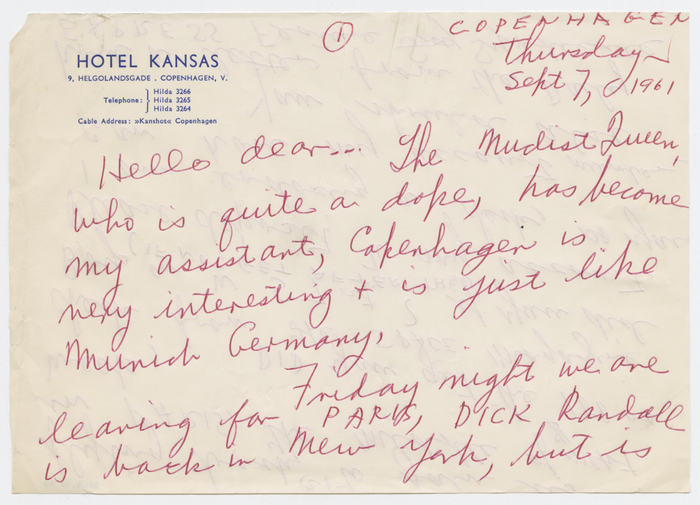 ①
COPENHAGEN
Thursday
Sept 7, 1961
HOTEL KANSAS
9, HELGOLANDSGADE . COPENHAGEN, V.
Telephone: Hilda 3266
Hilda 3265
Hilda 3264
Cable Address: »Kanshot« Copenhagen
Hello dear... The Nudist Queen,
who is quite a dope, has become
my assistant, Copenhagen is
very interesting + is just like
Munich Germany.
Friday night we are
leaving for PARIS, DICK Randall
is back in New York, but is